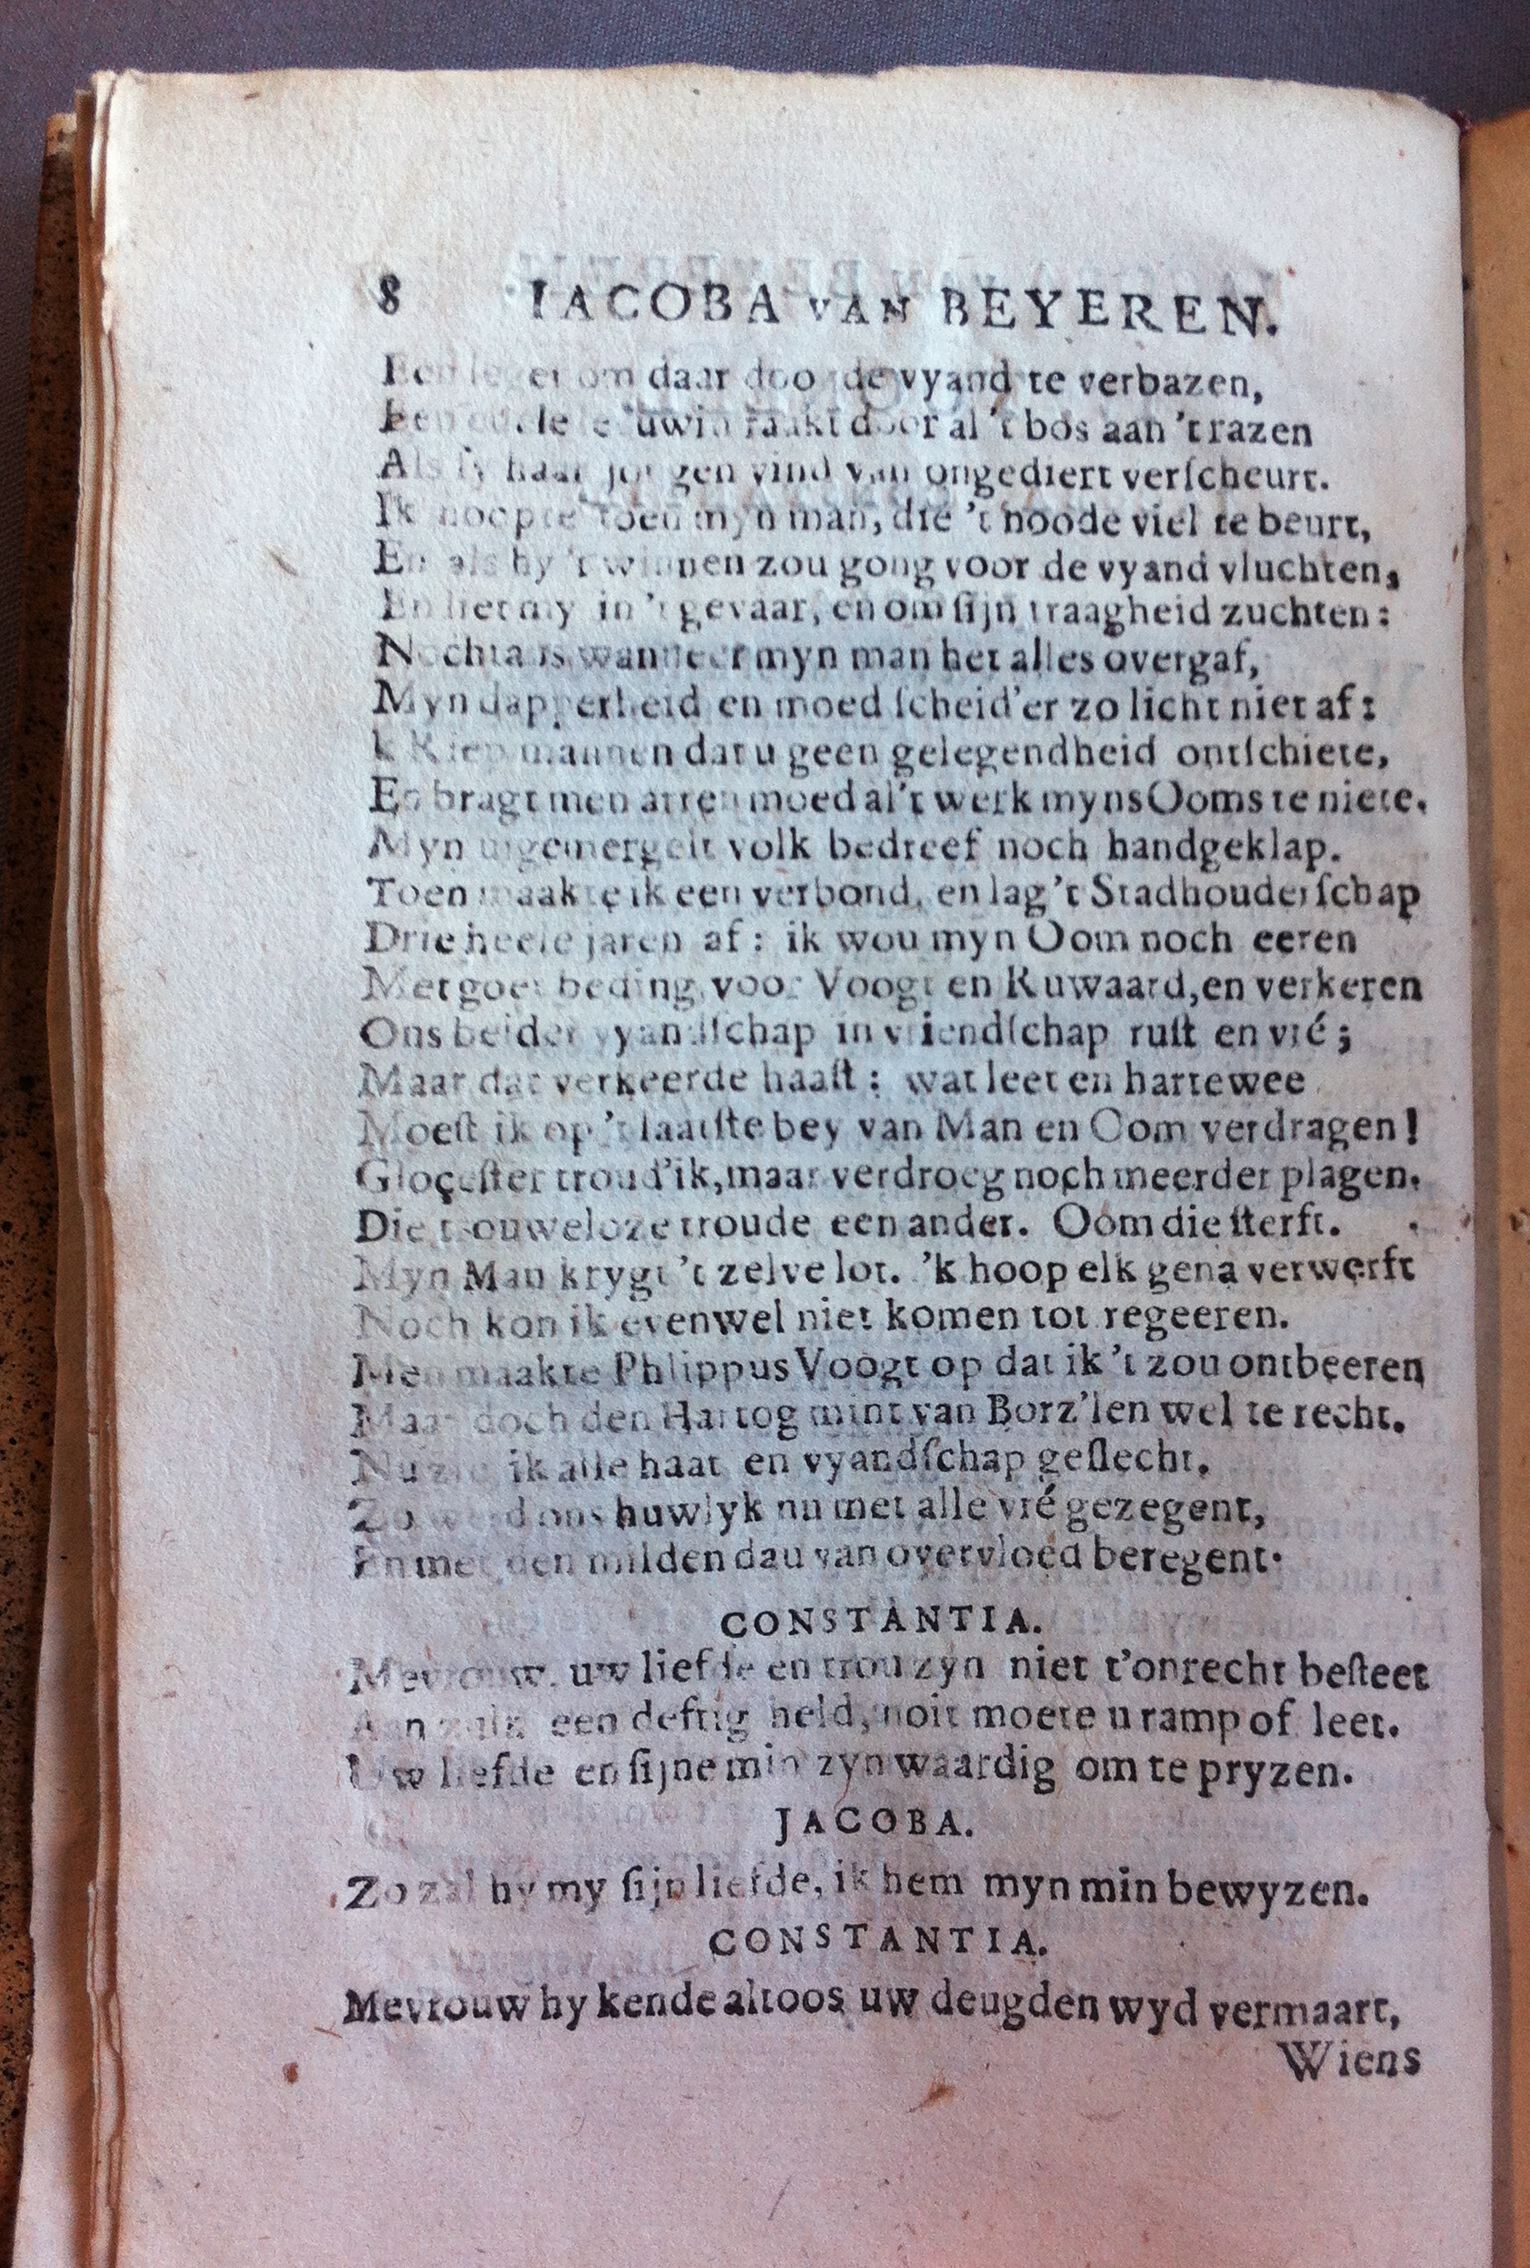 8 IACOBA VAN BEYEREN.
Een leger om daar door de vyand te verbazen,
Een edele leeuwin raakt door al 't bos aan 't razen
Als ſy haar jongen vind van ongediert verſcheurt.
Ik noopte toen myn man, die 't noode viel te beurt,
En als hy 't winnen zou gong voor de vyand vluchten,
En liet my in 't gevaar, en om ſijn traagheid zuchten:
Nochtans wanneer myn man het alles overgaf,
Myn dapperheid en moed ſcheid'er zo licht niet af:
k Riep mannen dat u geen gelegendheid ontſchiete,
En bragt men arren moed al't werk myns Ooms te niete.
Myn uigemergelt volk bedreef noch handgeklap.
Toen maakte ik een verbond, en lag 't Stadhouderſchap
Drie heele jaren af: ik wou myn Oom noch eeren
Met goet beding, voor Voogt en Ruwaard, en verkeren
Ons beider vyandſchap in vriendſchap ruſt en vré;
Maar dat verkeerde haaſt: wat leet en hartewee
Moeſt ik op 't laatſte bey van Man en Oom verdragen!
Gloceſter troud'ik, maar verdroeg noch meerder plagen.
Die trouweloze troude een ander. Oom die ſterft.
Myn Man krygt 't zelve lot. 'k hoop elk gena verwerft
Noch kon ik evenwel niet komen tot regeeren.
Men maakte Phlippus Voogt op dat ik 't zou ontbeeren
Maar doch den Hartog mint van Borz'len wel te recht.
Nu zie ik alle haat en vyandſchap geſlecht.
Zo werd ons huwlyk nu met alle vré gezegent,
En met den milden dau van overvloed beregent.
CONSTANTIA.
Mevrouw, uw liefde en trou zyn niet t'onrecht beſteet
Aan zulk een deftig held, noit moete u ramp of leet.
Uw liefde en ſijne min zyn waardig om te pryzen.
JACOBA.
Zo zal hy my ſijn liefde, ik hem myn min bewyzen.
CONSTANTIA.
Mevrouw hy kende altoos uw deugden wyd vermaart,
Wiens